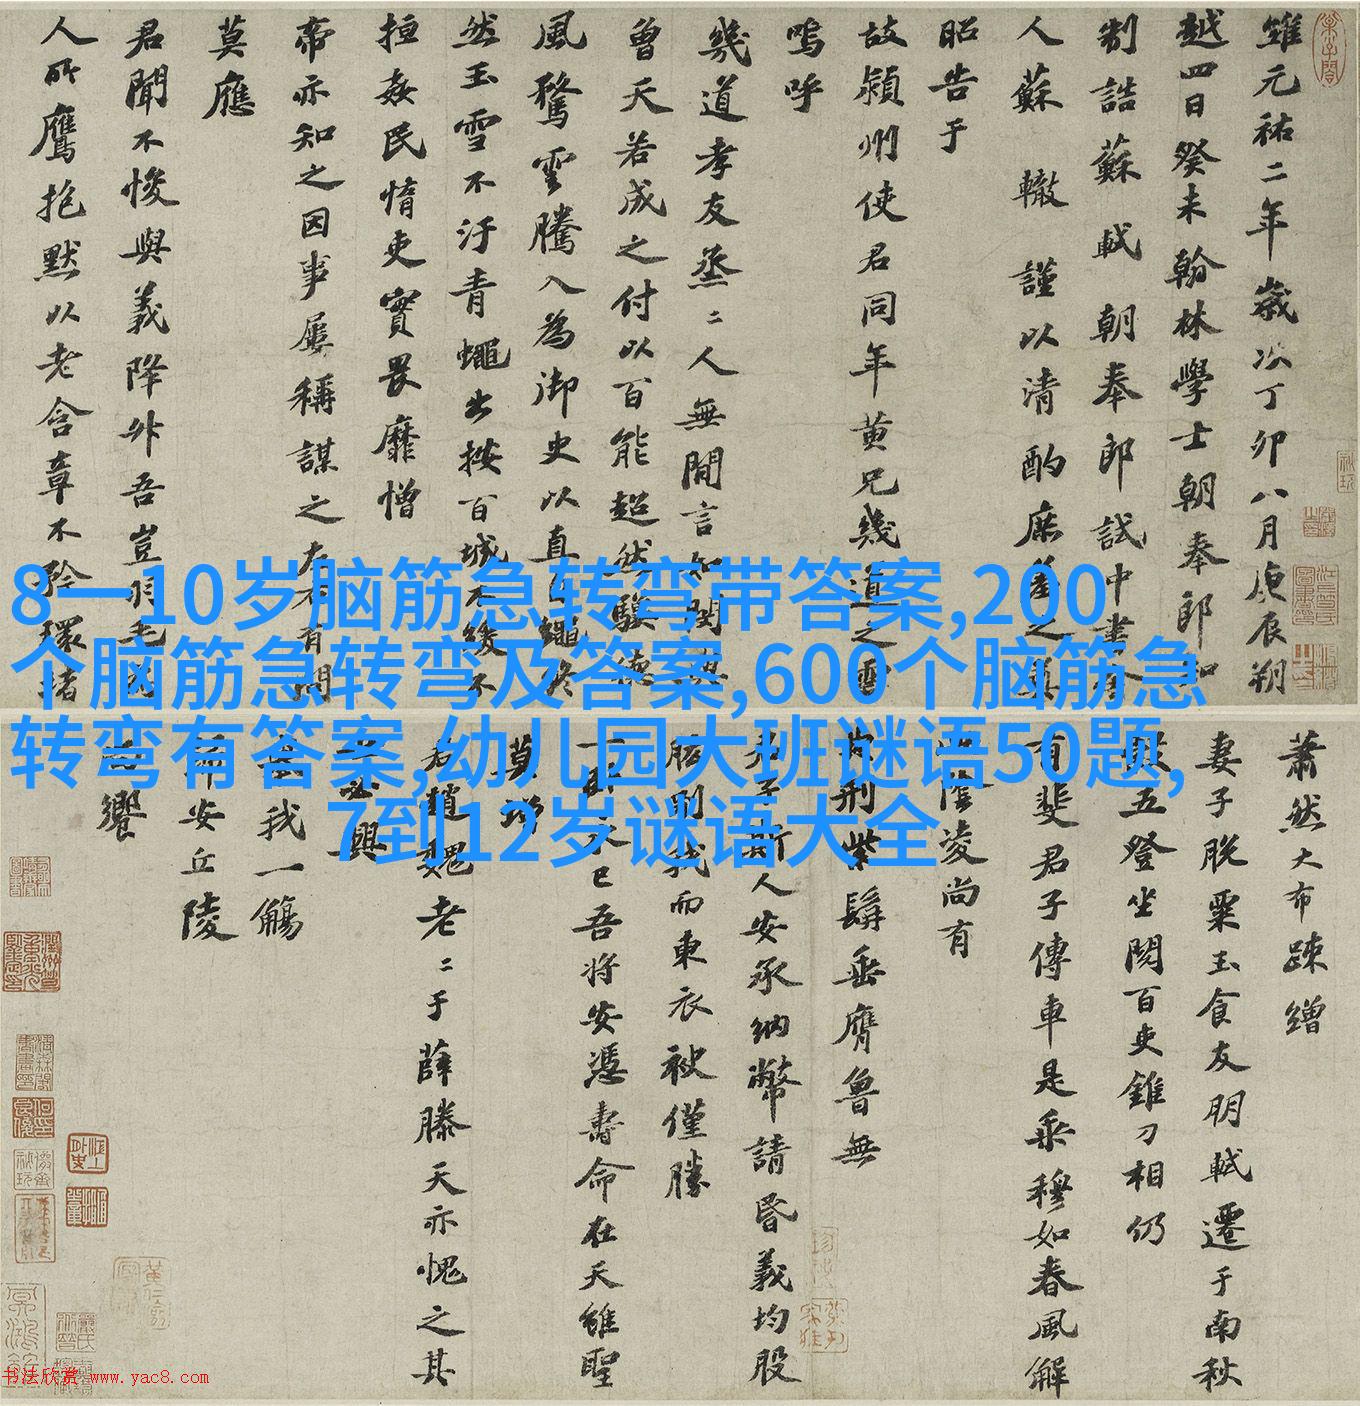 8一10岁脑筋急转弯带答案,200
个脑筋急转弯及答案,600个脑筋急
转弯有答案,幼儿园大班谜语50题,
7到12岁谜语大全
維元祐二年歲次丁卯八月庚辰朔
越四日癸未翰林學士朝奉郎知
制誥蘇軾朝奉郎試中書舍
人蘇轍謹以清酌庶羞之奠
昭告于
故潁州使君同年黄兄幾道之靈
嗚呼
幾道孝友烝二人無間言如閔與
曾天若成之付以百能超然驥德
風騖雲騰入為御史以直自繩終
然玉雪不汙青蠅出按百城不緩不
揎姦民惰吏實畏靡憎
帝亦知之因事屢稱謀之左右有問
莫應
君聞不悛與義降升吾豈羽毛為
人所鷹抱默以老含章不矜環堵
蕭然大布疎繒
妻子脫粟玉食友朋軾遷于南秋
五登坐閲百吏錐刀相仍
有斐君子傳車是乘穆如春風解
陰凌尚有
典刑紫髯垂膺魯無
君子斯人安承納幣請昏義均股
肱別我而東衣袂僅勝
一卧永已吾將安憑壽命在天雖聖
莫增
君趙魏老二于薛滕天亦愧之其
必興
舉我一觴
歸安丘陵
尚饗
书法欣赏 www.yac8.com